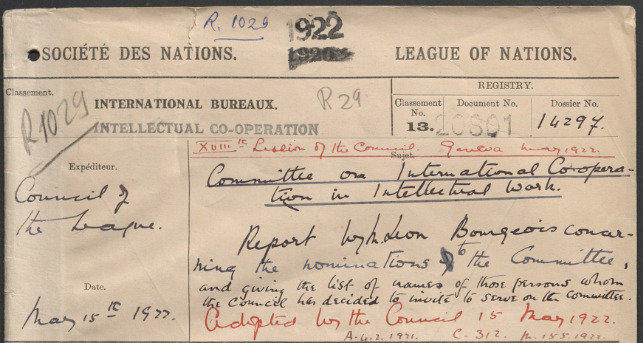 R. 1029
1922
1920
SOCIÉTÉ DES NATIONS.
LEAGUE OF NATIONS.
Classement.
R1029
INTERNATIONAL BUREAUX.
INTELLECTUAL CO-OPERATION
R29
REGISTRY.
Classement No.
Document No.
Dossier No.
13.
20801
14297.
XVIIIth Session of the Council. Geneva May 1922.
Sujet.
Expéditeur.
Council of
the League.
Committee on International Co-opera-
tion in Intellectual Work.
Report by M. Léon Bourgeois concer-
ning the nominations to the Committee,
and giving the list of names of those persons whom
the Council has decided to invite to serve on the Committee.
Date.
May 15th 1922.
Adopted by the Council 15 May 1922.
C. 312. M. 155. 1922.